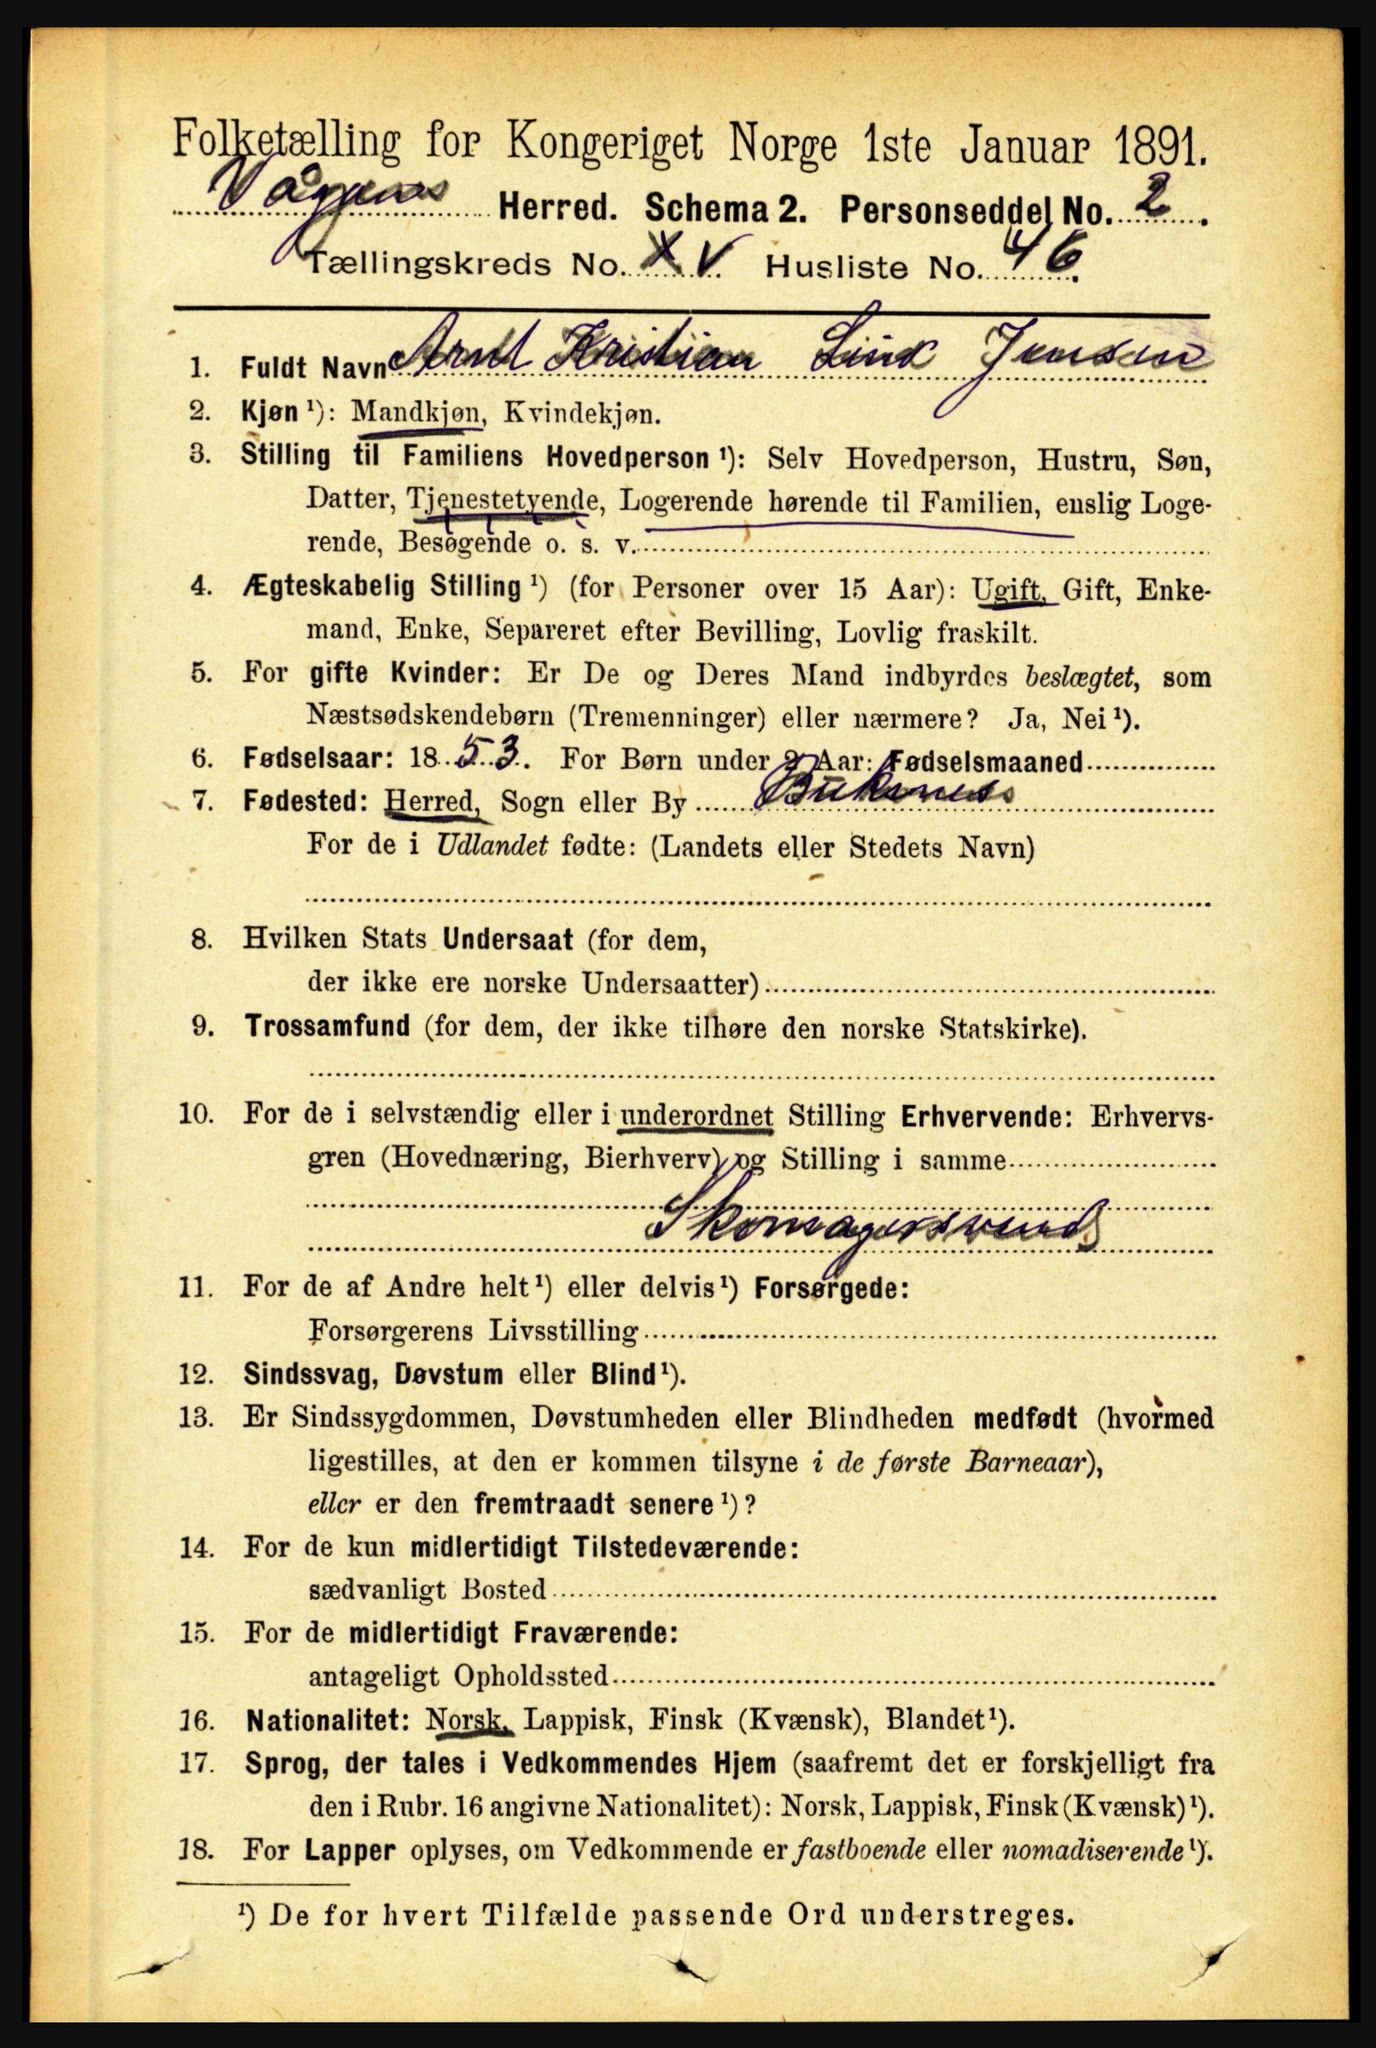 Folketælling for Kongeriget Norge 1ste Januar 1891.
Vågens Herred. Schema 2. Personseddel No. 2.
Tællingskreds No. XV Husliste No. 46.
1. Fuldt Navn Arnt Kristian Lind Jensen
2. Kjøn ¹): Mandkjøn, Kvindekjøn.
3. Stilling til Familiens Hovedperson ¹): Selv Hovedperson, Hustru, Søn,
Datter, Tjenestetyende, Logerende hørende til Familien, enslig Loge-
rende, Besøgende o. s. v.
4. Ægteskabelig Stilling ¹) (for Personer over 15 Aar): Ugift, Gift, Enke-
mand, Enke, Separeret efter Bevilling, Lovlig fraskilt.
5. For gifte Kvinder: Er De og Deres Mand indbyrdes beslægtet, som
Næstsødskendebørn (Tremenninger) eller nærmere? Ja, Nei ¹).
6. Fødselsaar: 1853. For Børn under 2 Aar: Fødselsmaaned
7. Fødested: Herred, Sogn eller By Buksness
For de i Udlandet fødte: (Landets eller Stedets Navn)
8. Hvilken Stats Undersaat (for dem,
der ikke ere norske Undersaatter)
9. Trossamfund (for dem, der ikke tilhøre den norske Statskirke).
10. For de i selvstændig eller i underordnet Stilling Erhvervende: Erhvervs-
gren (Hovednæring, Bierhverv) og Stilling i samme
Skomagersvend
11. For de af Andre helt ¹) eller delvis ¹) Forsørgede:
Forsørgerens Livsstilling
12. Sindssvag, Døvstum eller Blind ¹).
13. Er Sindssygdommen, Døvstumheden eller Blindheden medfødt (hvormed
ligestilles, at den er kommen tilsyne i de første Barneaar),
eller er den fremtraadt senere ¹)?
14. For de kun midlertidigt Tilstedeværende:
sædvanligt Bosted
15. For de midlertidigt Fraværende:
antageligt Opholdssted
16. Nationalitet: Norsk, Lappisk, Finsk (Kvænsk), Blandet ¹).
17. Sprog, der tales i Vedkommendes Hjem (saafremt det er forskjelligt fra
den i Rubr. 16 angivne Nationalitet): Norsk, Lappisk, Finsk (Kvænsk) ¹).
18. For Lapper oplyses, om Vedkommende er fastboende eller nomadiserende ¹).
¹) De for hvert Tilfælde passende Ord understreges.